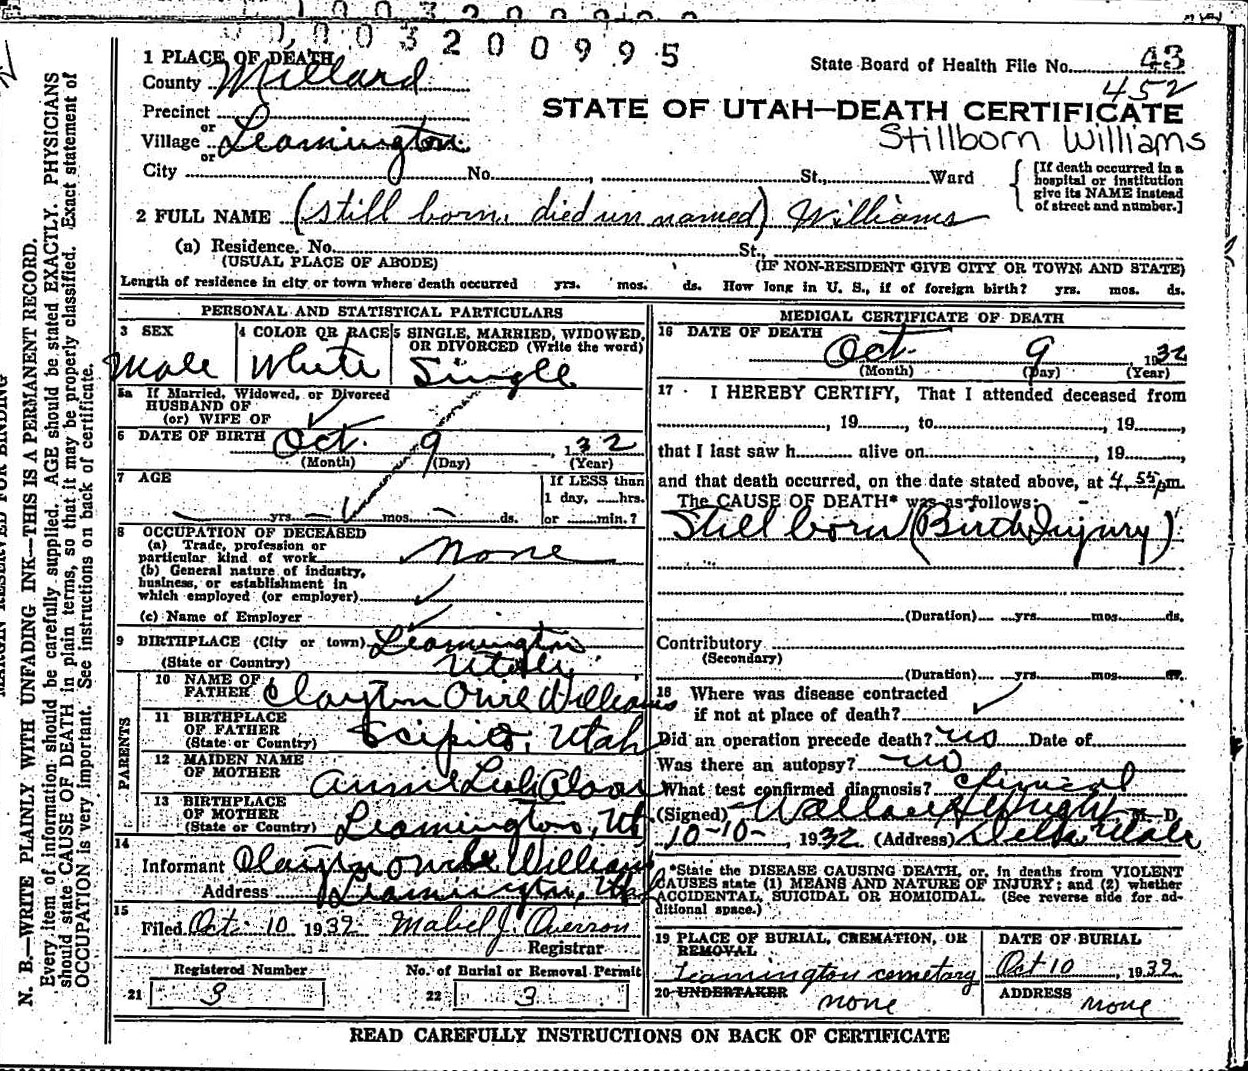 0 0 0 3 2 0 0 9 9 5
1 PLACE OF DEATH
County Millard
State Board of Health File No. 43
452
Precinct
STATE OF UTAH—DEATH CERTIFICATE
or
Village Leamington
Stillborn Williams
or
City No. , St., Ward
[If death occurred in a
hospital or institution
give its NAME instead
of street and number.]
2 FULL NAME (still born, died un named) Williams
(a) Residence. No. St.,
(USUAL PLACE OF ABODE) (IF NON-RESIDENT GIVE CITY OR TOWN AND STATE)
Length of residence in city or town where death occurred yrs. mos. ds. How long in U. S., if of foreign birth? yrs. mos. ds.
PERSONAL AND STATISTICAL PARTICULARS
3 SEX
Male
4 COLOR OR RACE
White
5 SINGLE, MARRIED, WIDOWED,
OR DIVORCED (Write the word)
Single
5a If Married, Widowed, or Divorced
HUSBAND OF
(or) WIFE OF
6 DATE OF BIRTH Oct. 9, 1932
(Month) (Day) (Year)
7 AGE
yrs. mos. ds.
If LESS than
1 day, hrs.
or min.?
8 OCCUPATION OF DECEASED
(a) Trade, profession or
particular kind of work none
(b) General nature of industry,
business, or establishment in
which employed (or employer)
(c) Name of Employer
9 BIRTHPLACE (City or town) Leamington
(State or Country) Utah
PARENTS
10 NAME OF
FATHER Clayton Williams
11 BIRTHPLACE
OF FATHER
(State or Country) Scipio, Utah
12 MAIDEN NAME
OF MOTHER
13 BIRTHPLACE
OF MOTHER
(State or Country) Leamington, Ut
14
Informant Clayton Williams
Address Leamington, Utah
15
Filed Oct 10 1932 Mabel J. Overson
Registrar
Registered Number
21 3
No. of Burial or Removal Permit
22 3
MEDICAL CERTIFICATE OF DEATH
16 DATE OF DEATH
Oct. 9 1932
(Month) (Day) (Year)
17 I HEREBY CERTIFY, That I attended deceased from
, 19 , to , 19 ,
that I last saw h alive on , 19 ,
and that death occurred, on the date stated above, at 4.55 pm.
The CAUSE OF DEATH* was as follows:
Still born (Birth Injury)
(Duration) yrs. mos. ds.
Contributory
(Secondary)
(Duration) yrs. mos. ds.
18 Where was disease contracted
if not at place of death?
Did an operation precede death? no Date of
Was there an autopsy? no
What test confirmed diagnosis? clinical
(Signed) M. D.
10-10-, 1932 (Address) Delta Utah
*State the DISEASE CAUSING DEATH, or, in deaths from VIOLENT
CAUSES state (1) MEANS AND NATURE OF INJURY; and (2) whether
ACCIDENTAL, SUICIDAL OR HOMICIDAL. (See reverse side for ad-
ditional space.)
19 PLACE OF BURIAL, CREMATION, OR
REMOVAL
Leamington cemetary
DATE OF BURIAL
Oct 10, 1932
20 UNDERTAKER
none
ADDRESS
none
READ CAREFULLY INSTRUCTIONS ON BACK OF CERTIFICATE
MARGIN RESERVED FOR BINDING
N. B.—WRITE PLAINLY WITH UNFADING INK—THIS IS A PERMANENT RECORD.
Every item of information should be carefully supplied. AGE should be stated EXACTLY. PHYSICIANS
should state CAUSE OF DEATH in plain terms, so that it may be properly classified. Exact statement of
OCCUPATION is very important. See instructions on back of certificate.